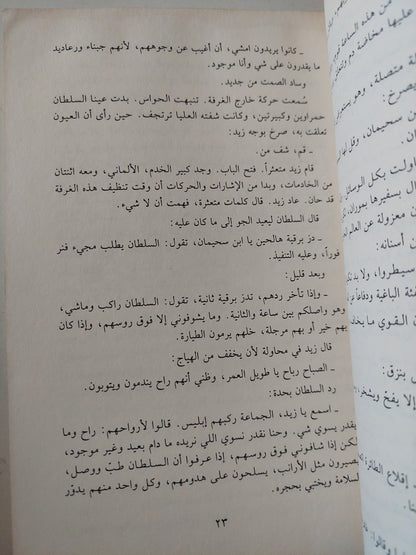 ـ كانوا يريدون امشي، أن أغيب عن وجوههم، لأنهم جبناء ورعاديد
ما يقدرون على شي وأنا موجود.
وساد الصمت من جديد.
سُمعت حركة خارج الغرفة. تنبهت الحواس. بدت عينا السلطان
حمراوين وكبيرتين، وكانت شفته العليا ترتجف. حين رأى أن العيون
تعلقت به، صرخ بوجه زيد:
ـ قم، شف من.
قام زيد متعثراً. فتح الباب. وجد كبير الخدم، الألماني، ومعه اثنتان
من الخادمات، وبدا من الإشارات والحركات أن وقت تنظيف هذه الغرفة
قد حان. عاد زيد. قال كلمات متعثرة، فهمت أن لا شيء.
قال السلطان ليعيد الجو إلى ما كان عليه:
ـ دز برقية هالحين يا ابن سحيمان، تقول: السلطان يطلب مجيء فنر
فوراً، وعليه التنفيذ.
وبعد قليل:
ـ وإذا تأخر ردهم، تدز برقية ثانية، تقول: السلطان راكب وماشي،
وهو واصلكم بين ساعة والثانية. وما يشوفوني إلا فوق روسهم، وإذا كان
بهم خير أو بهم مرجلة، خلهم يرمون الطيارة.
قال زيد في محاولة لأن يخفف من الهياج:
ـ الصباح رباح يا طويل العمر، وظني أنهم راح يندمون ويتوبون.
رد السلطان بحدة:
ـ اسمع يا زيد، الجماعة ركبهم إبليس. قالوا لأرواحهم: راح وما
يقدر يسوي شي. وحنا نقدر نسوي اللي نريده ما دام بعيد وغير موجود،
لكن إذا شافوني فوق روسهم، إذا عرفوا أن السلطان طبّ ووصل،
يصيرون مثل الأرانب، يسلحون على هدومهم، وكل واحد منهم يدوّر
السلامة ويختبي بحجره.
٢٣
من هذه الساحة
عليها مخاضة دم
لة متصلة، وهو يستم
يصرخ:
ن سحيمان، وقل لها
اولت بكل الوسائل
ل بسفيرها بموران،
معزولة عن العالم
أسنانه:
سيطروا، ولا بد
فئة الباغية ودفاعاً
القوي ما يخا
بنزق:
إلا يفخ ويشخر،
إقلاع الطائرة